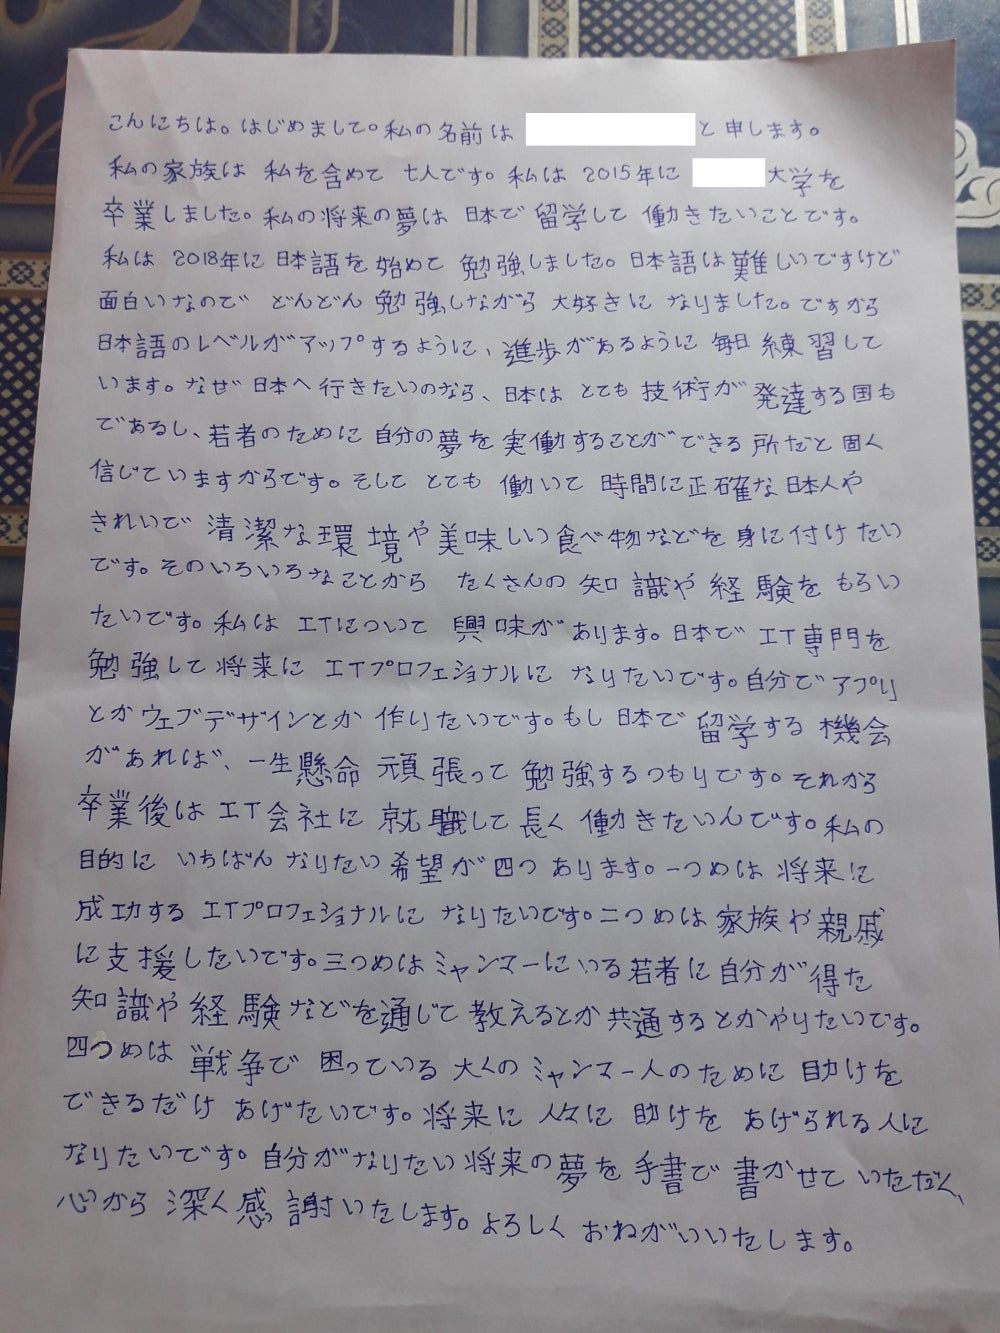 こんにちは。はじめまして。私の名前は と申します。
私の家族は 私を含めて 七人です。私は 2015年に 大学を
卒業しました。私の将来の夢は 日本で 留学して 働きたいことです。
私は 2018年に 日本語を 始めて 勉強しました。日本語は 難しいですけど
面白いなので どんどん 勉強しながら 大好きに なりました。ですから
日本語のレベルがアップするように、進歩があるように 毎日 練習して
います。なぜ 日本へ 行きたいのなら、日本は とても 技術が 発達する国も
であるし、若者のために 自分の夢を 実働することができる 所だと 固く
信じていますからです。そして とても 働いて 時間に正確な 日本人や
きれいで 清潔な環境や美味しい食べ物などを 身に付けたい
です。そのいろいろなことから たくさんの 知識や 経験を もらい
たいです。私は ITについて 興味があります。日本で IT専門を
勉強して 将来に ITプロフェショナルに なりたいです。自分で アプリ
とかウェブデザインとか 作りたいです。もし 日本で 留学する 機会
があれば、一生懸命 頑張って 勉強するつもりです。それから
卒業後は IT会社に 就職して 長く 働きたいんです。私の
目的に いちばん なりたい 希望が 四つ あります。一つめは 将来に
成功する ITプロフェショナルに なりたいです。二つめは 家族や 親戚
に支援したいです。三つめは ミャンマーにいる 若者に 自分が 得た
知識や 経験などを通じて 教えるとか 共通するとかやりたいです。
四つめは 戦争で 困っている 大くの ミャンマー人のために 助けを
できるだけ あげたいです。将来に 人々に 助けを あげられる 人に
なりたいです。自分がなりたい 将来の夢を 手書で 書かせて いただく、
心から 深く感謝いたします。よろしく おねがいいたします。